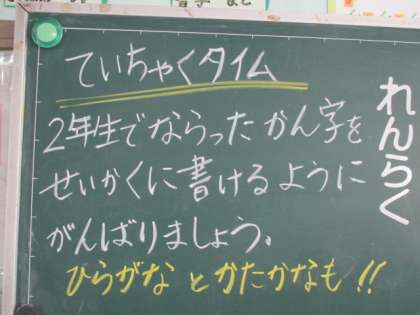 ていちゃくタイム
2年生でならったかん字を
せいかくに書けるように
がんばりましょう。
ひらがなとかたかなも!!
れんらく